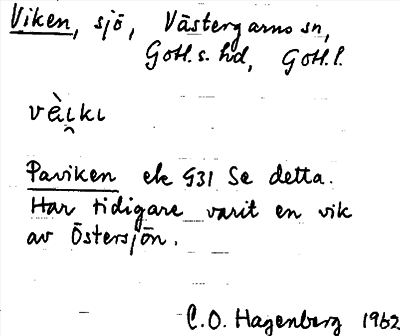 Viken, sjö, Västergarns sn,
Gotl. s. hd, Gotl. l.
vài̯kı
Paviken ek 931 Se detta.
Har tidigare varit en vik
av Östersjön.
C.O. Hagenberg 1962